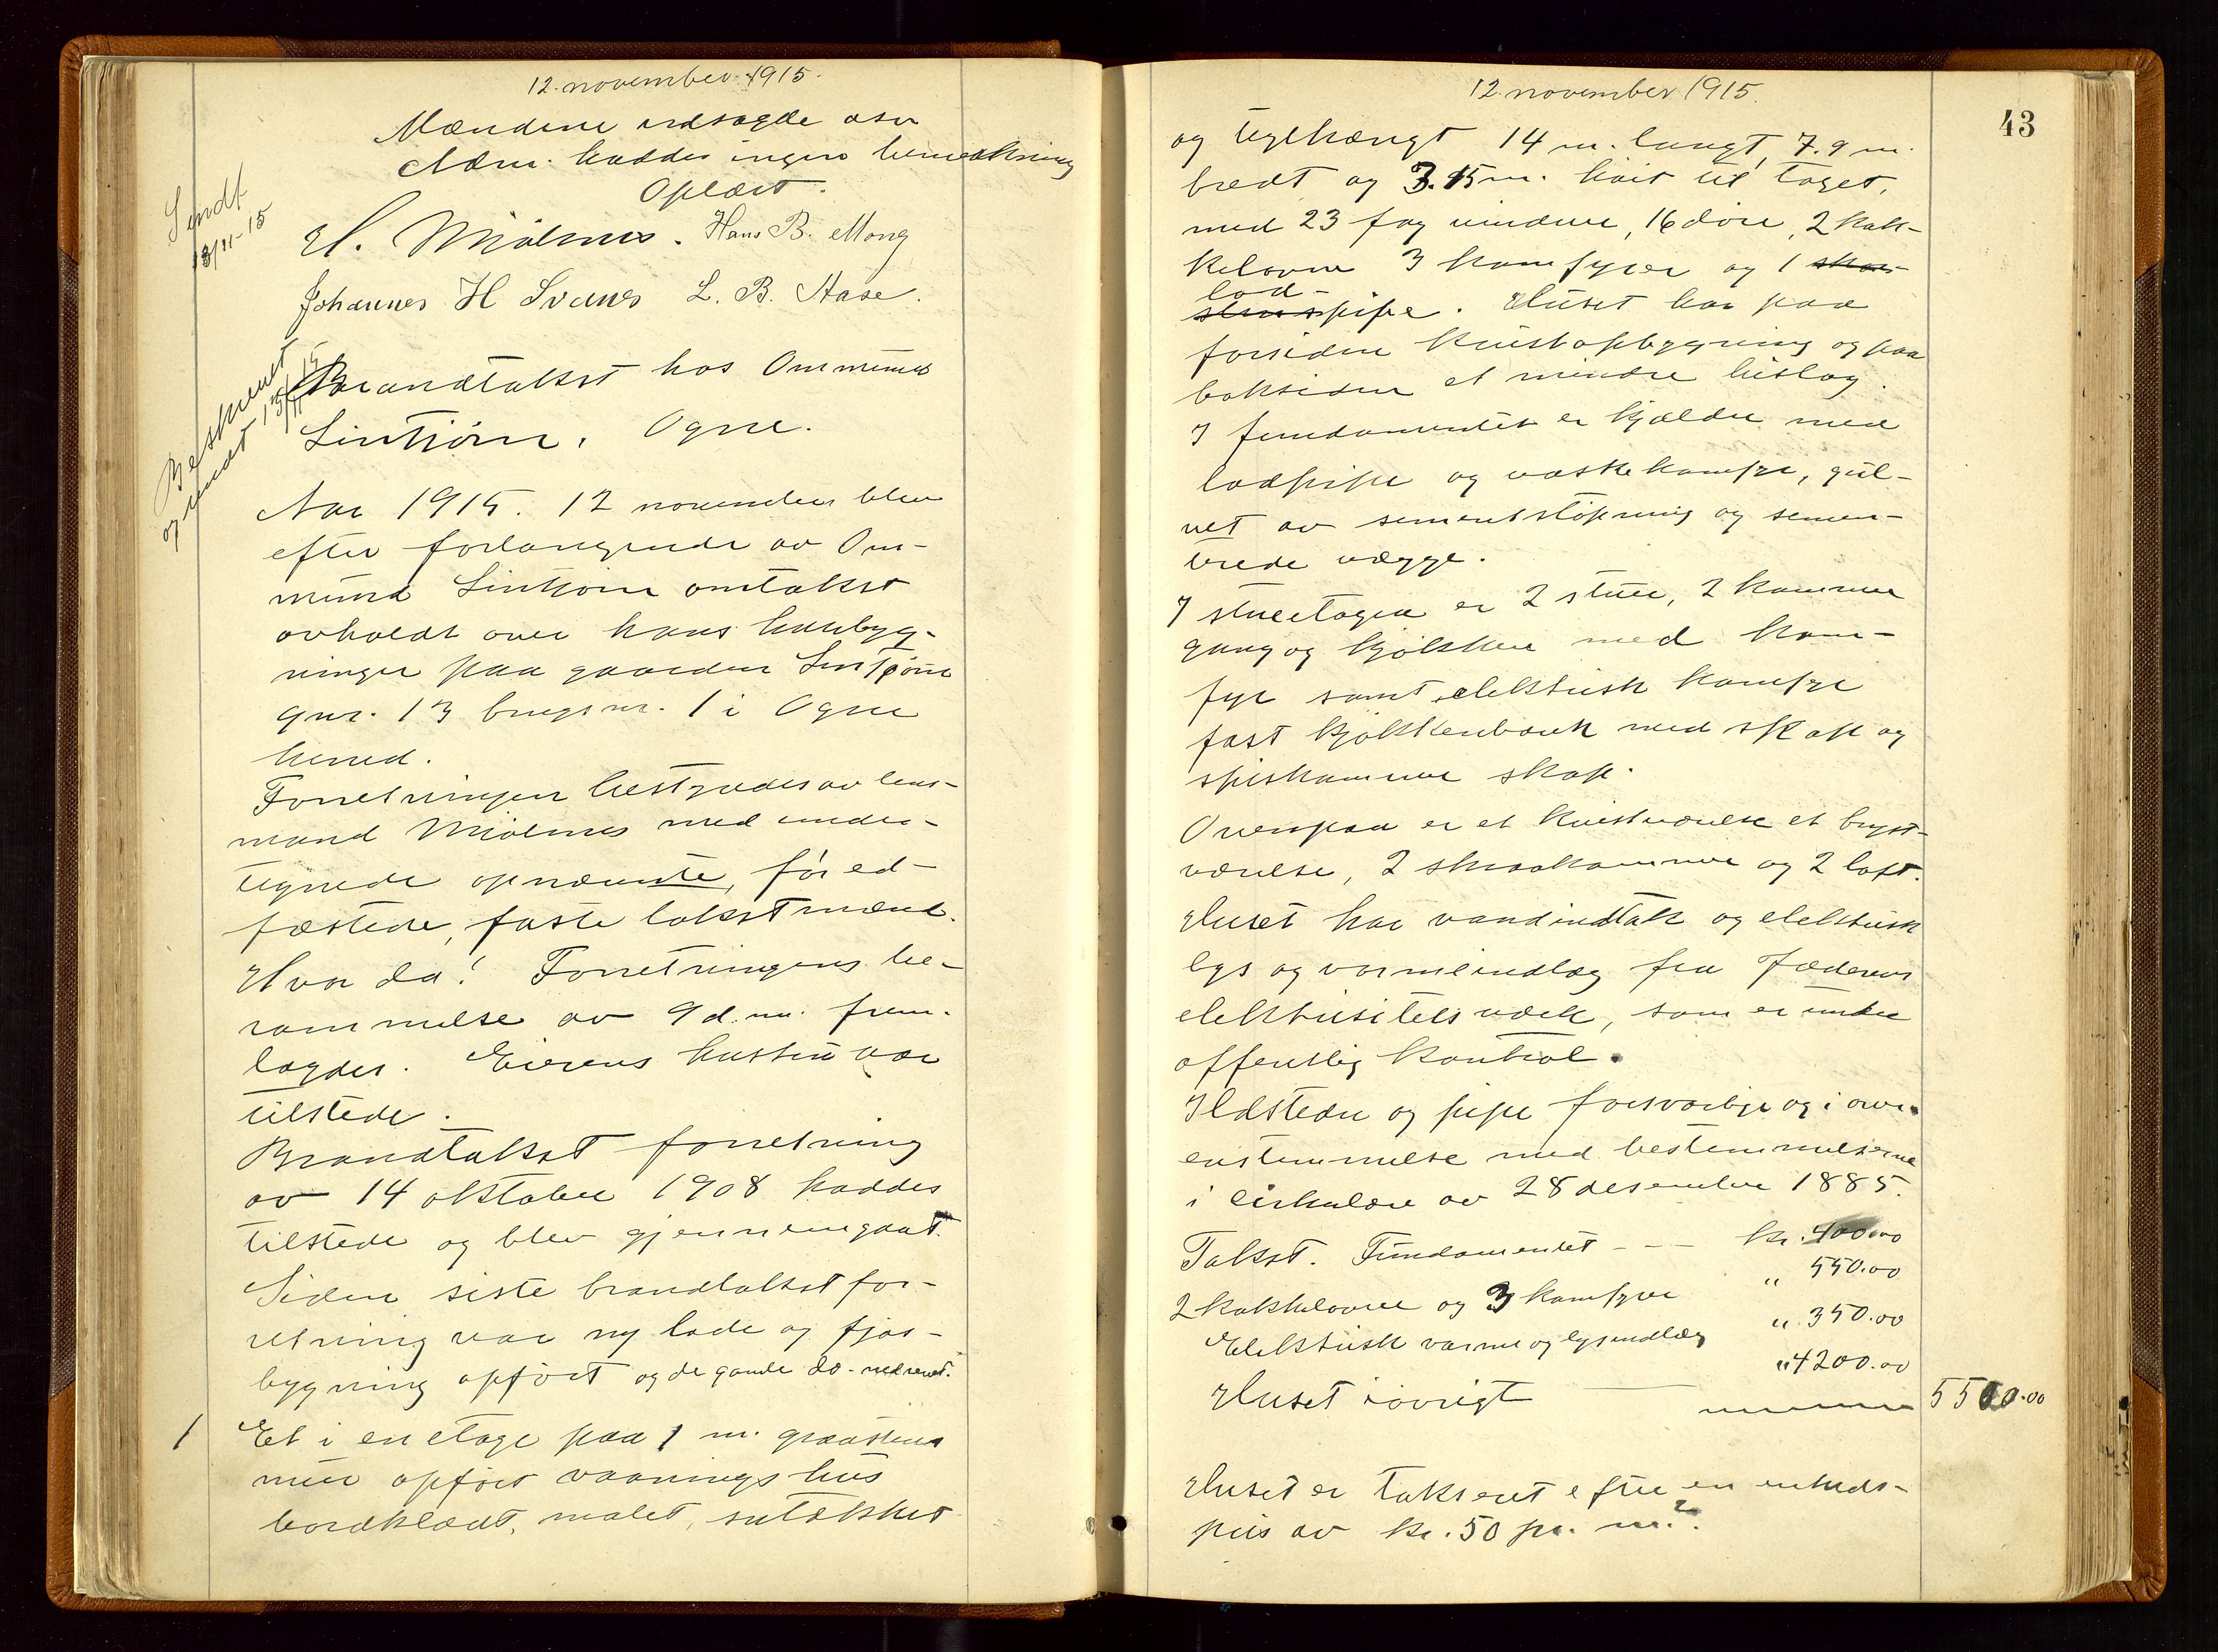 12. november 1915.
Mændene utsagde osv
Adm. hadde ingen bemerkning
Oplæst.
H. Mjølsnes. Hans B. Mong
Johannes H Svanes L. B. Aase.
Sendt
13/11-15
Beskrevet
og sendt 15/11 15
Brandtakst hos Ommund
Lintjørn, Ogne.
Aar 1915. 12 november blev
efter forlangende av Om-
mund Lintjørn omtakst
avholdt over hans husbyg-
ninger paa gaarden Lintjørn
gnr. 13 brugsnr. 1 i Ogne
herred.
Forretningen bestyredes av lens-
mand Mjølsnes med under-
tegnede opnævnte, før ed-
fæstede, faste takstmænd.
Hvor da! Forretningens be-
rammelse av 9 d. m. frem-
lagdes. Eierens hustru var
tilstede.
Brandtakst forretning
av 14 oktober 1908 haddes
tilstede og blev gjennemgaat.
Siden siste brandtakst for-
retning var ny lade og fjøs-
bygning opført og de gamle do- nedrevet.
1 Et i en etage paa 1 m. graastens
mur opført vaaningshus
bordklædt, malet, sutækket
12. november 1915.
43
og teglhængt 14 m. langt, 7.9 m.
bredt og 3.15 m. høit til taget,
med 23 fag vinduer, 16 døre, 2 kak-
kelovne 3 komfyrer og 1
lod-
pipe. Huset har paa
forsiden kvistopbygning og paa
baksiden et mindre bislag.
I fundamentet er kjælder med
lodpipe og vaskekomfyr, gul-
vet av sementstøpning og semen-
terede vægge.
I stueetagen er 2 stuer, 2 kammer
gang og kjøkken med kom-
fyr samt elektrisk komfyr
fast kjøkkenbænk med skap og
spiskammer skap.
Ovenpaa er et kvistværelse et bryst-
værelse, 2 skraakammer og 2 loft.
Huset har vandindtak og elektrisk
lys og varmeindlæg fra Jæderens
elektrisitetsværk, som er under
offentlig kontrol.
Ildsteder og pipe forsvarlige og i over-
enstemmelse med bestemmelserne
i cirkulære av 28 desember 1885.
Takst. Fundamentet - - kr. 400.00
2 kakkelovne og 3 komfyrer " 550.00
Elektrisk varme og lysindlæg " 350.00
Huset iøvrigt " 4200.00
5500.00
Huset er takseret efter en enheds-
pris av kr. 50 pr. m.².